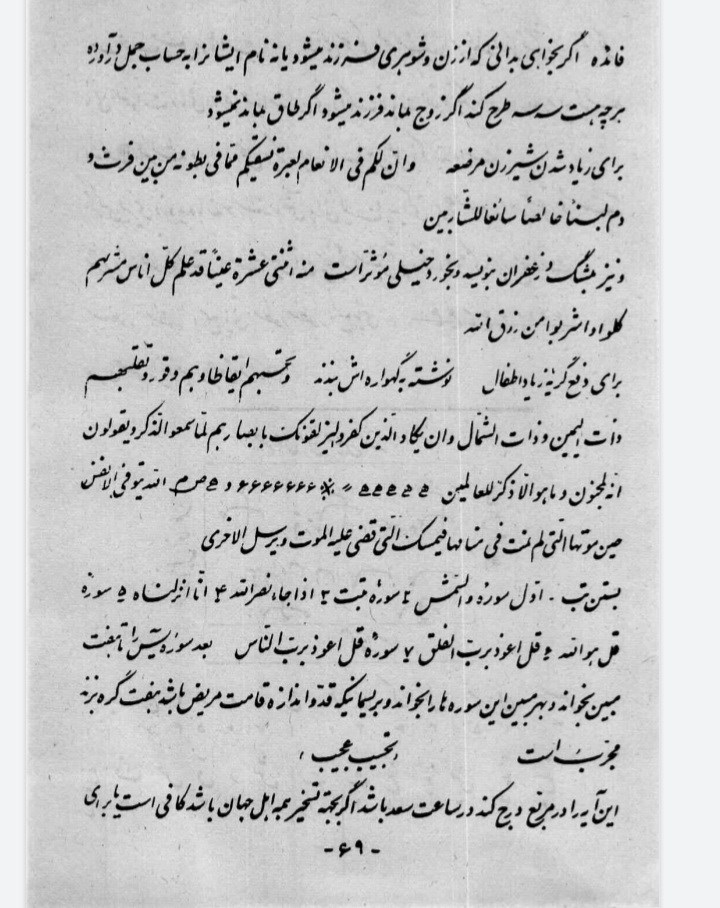 فائده اگر بخواهی بدانی که از زن و شوهری فرزند میشود یا نه نام ایشانرا به حساب جمل درآورده
هرچه هست سه سه طرح کند اگر زوج بماند فرزند میشود اگر طاق بماند نمیشود
برای زیاد شدن شیر زن مرضعه وان لکم فی الانعام لعبرة نسقیکم مما فی بطونه من بین فرث و
دم لبنا خالصا سائغا للشاربین
و نیز بمشگ و زعفران بنویسد و بخورد خیلی مؤثر است منه اثنتی عشرة عینا قد علم کل اناس مشربهم
کلوا واشربوا من رزق الله
برای دفع گریه زیاد اطفال نوشته به گهواره اش بندند وتحسبهم ایقاظا وهم رقود ونقلبهم
ذات الیمین وذات الشمال وان یکاد الذین کفروا لیزلقونک بابصارهم لما سمعوا الذکر ویقولون
انه لمجنون وما هو الا ذکر للعالمین الله یتوفی الانفس
حین موتها والتی لم تمت فی منامها فیمسک التی قضی علیه الموت ویرسل الاخری
بستن تب - اول سورۀ والشمس ۲ سورۀ تبت ۳ اذا جاء نصرالله ۴ انا انزلناه ۵ سورۀ
قل هوالله ۶ قل اعوذ برب الفلق ۷ سورۀ قل اعوذ برب الناس بعد سورۀ یس را تا هفت
مبین بخواند و بهر مبین این سوره ها را بخواند و بریسمانیکه قد و اندازه قامت مریض باشد هفت گره بزند
مجرب است تجیب عجیب
این آیه را در مربع درج کند در ساعت سعد باشد اگر بجهة تسخیر همه اهل جهان باشد کافی است یا برای
-۶۹-